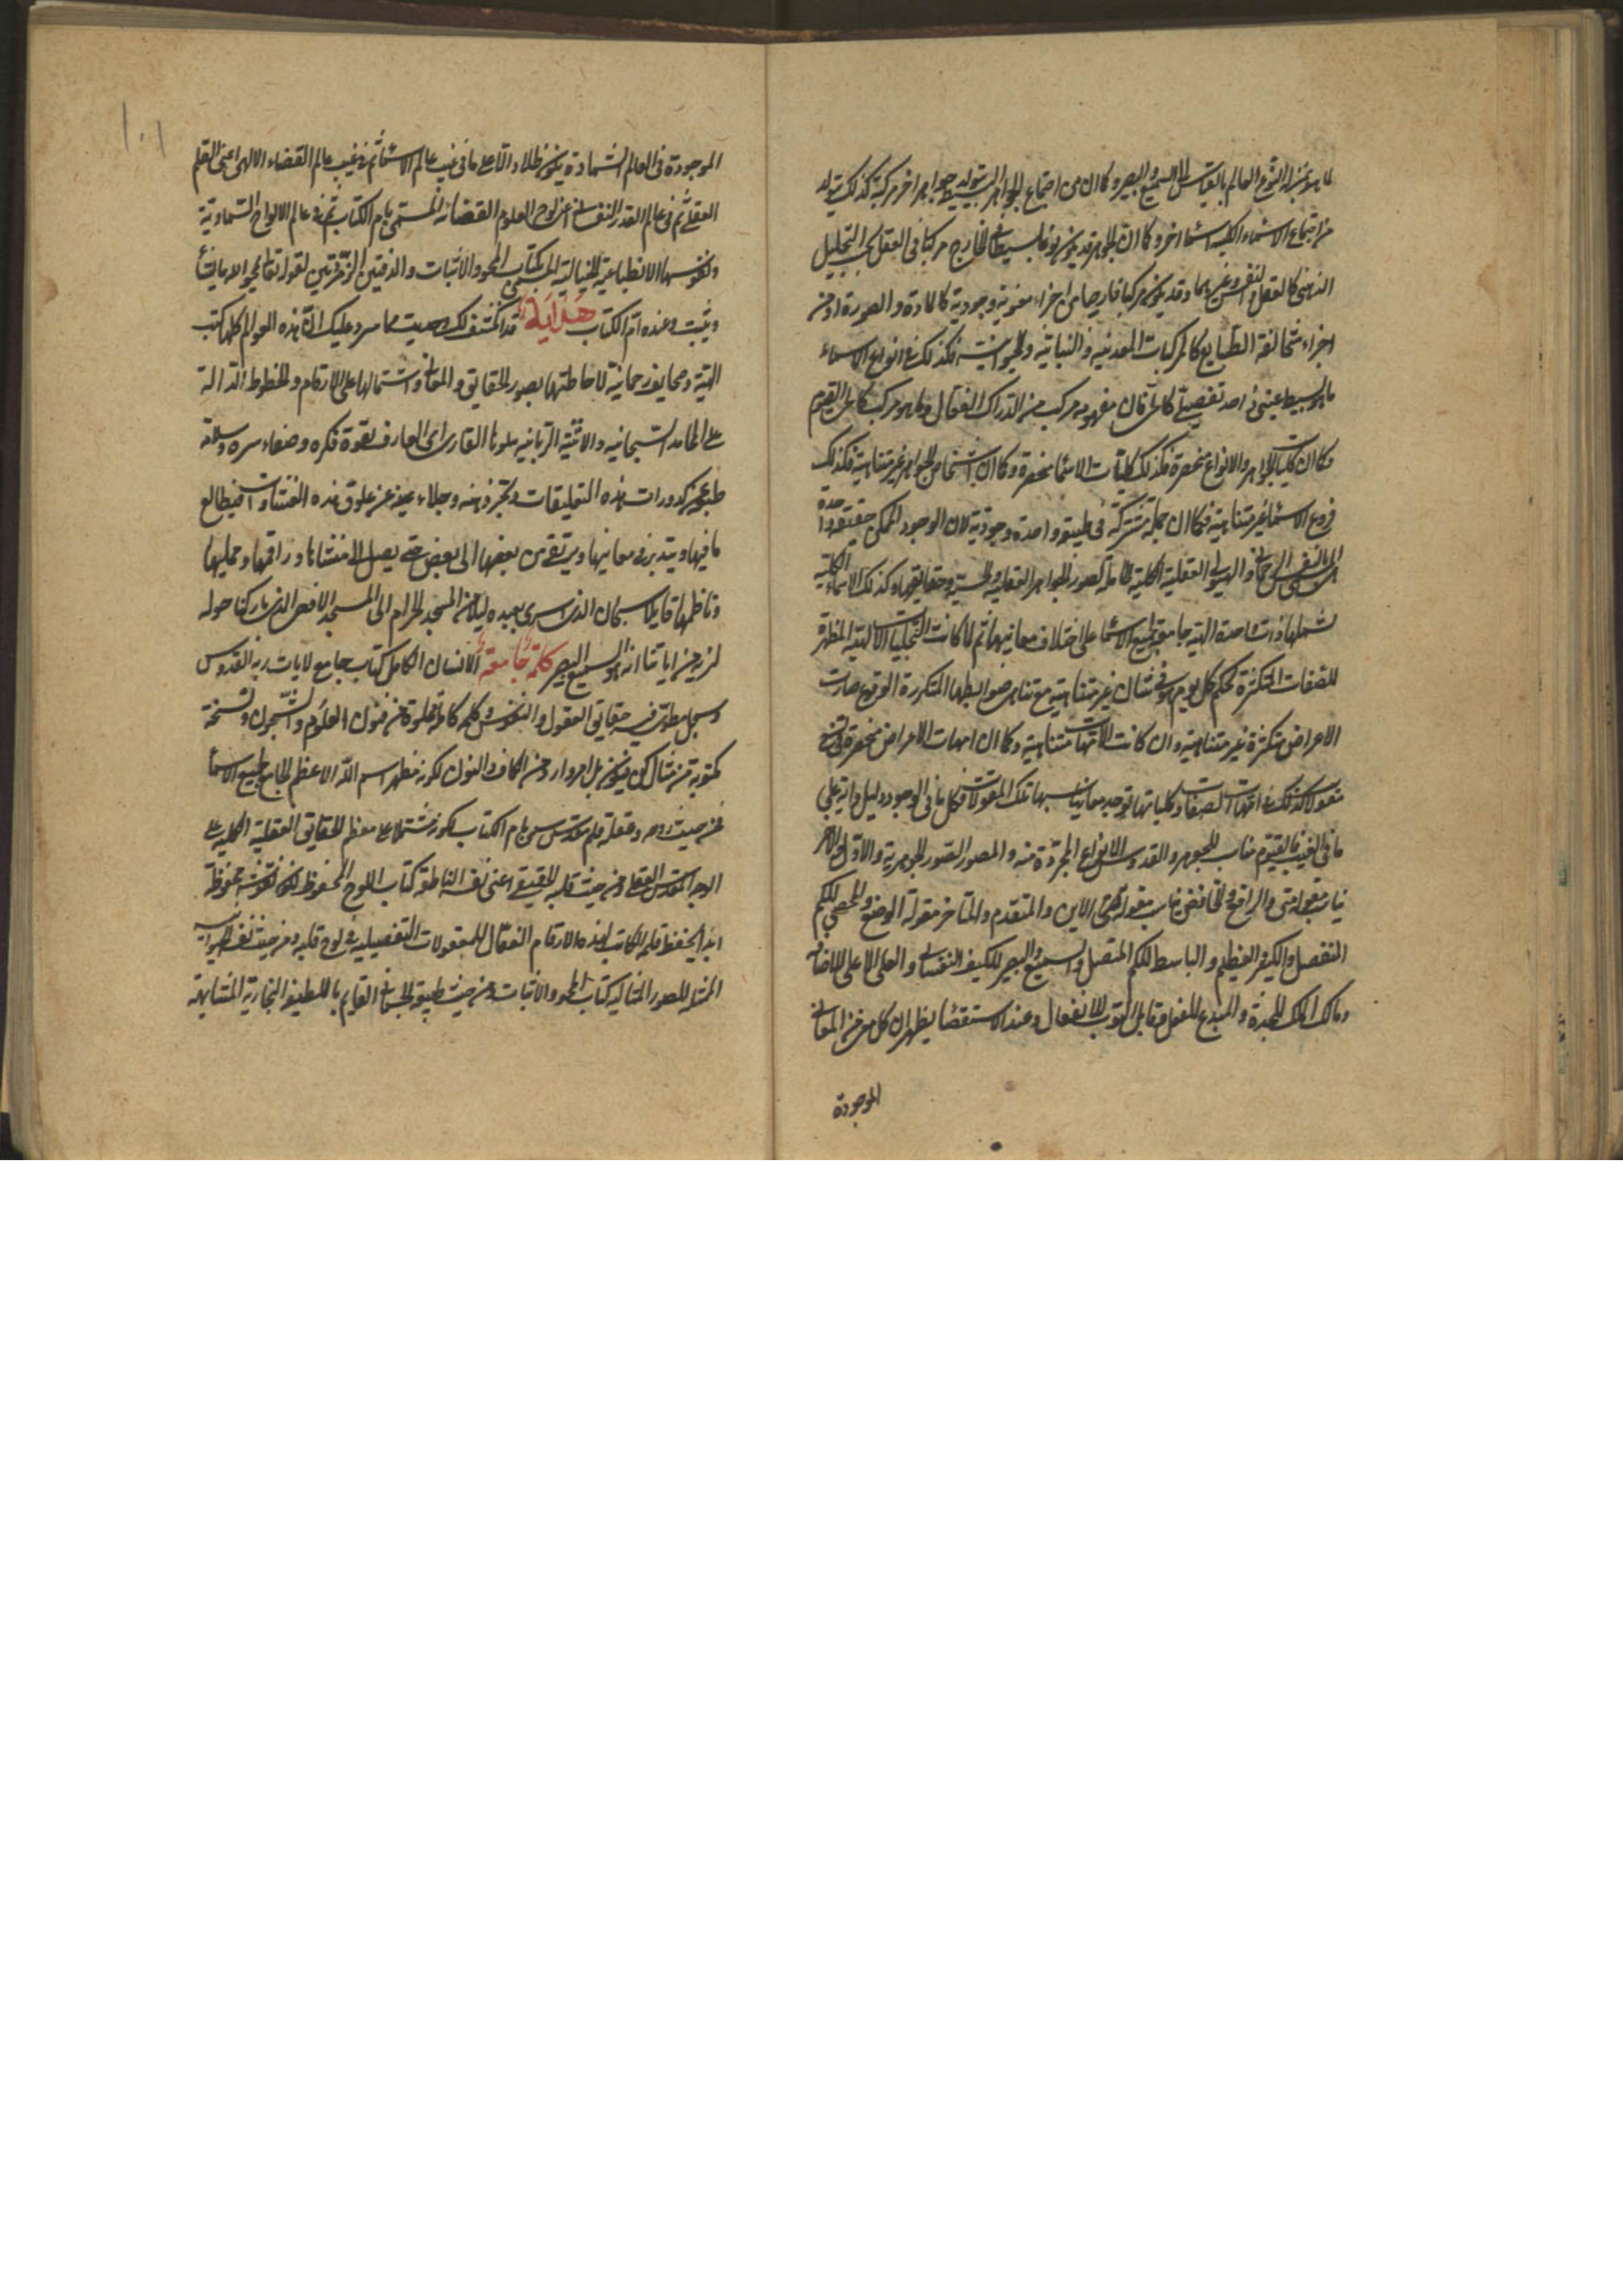 ما هو بمنزلة النوع العالم بالقياس الى السميع والبصير وكما ان من اجتماع الجواهر البسيطة يتولد جواهر اخر مركبة كذلك يتولد
من اجتماع الاسماء الكلية اسماء اخر وكما ان الجوهر قد يكون نوعا بسيطا في الخارج مركبا في العقل بحسب التحليل
الذهني كالعقل والنفس وغيرهما وقد يكون مركبا خارجيا من اجزاء معنوية وجودية كالمادة والصورة او من
اجزاء متخالفة الطبايع كالمركبات المعدنية والنباتية والحيوانية فكذلك في انواع الاسماء
ما هو بسيط عيني مفهومه مركب من الدراك الفعال وما هو مركب كالحي القيوم
وكما ان كليات الجواهر والانواع منحصرة فكذلك كليات الاسماء منحصرة وكما ان اشخاص الجواهر غير متناهية فكذلك
فروع الاسماء غير متناهية وكما ان جملة مشتركة في طبيعة واحدة وجودية لان الوجود الممكن حقيقة واحدة
هي النفس الرحماني والهيولى العقلية الكلية الحاملة لصور الجواهر العقلية والحسية وحقايقها وكذلك الاسماء الكلية
تشملها ذات احدة الهية جامعة لجميع الاسماء على اختلاف معانيها ثم لما كانت التجليات الالهية المظهرة
للصفات المتكثرة بحكم كل يوم هو في شان غير متناهية مع تناهى ضوابطها المتكررة الوقوع صارت
الاعراض متكثرة غير متناهية وان كانت الامهات متناهية وكما ان امهات الاعراض منحصرة في تسع
مقولات كذلك في امهات الصفات وكلياتها توجد معاني تناسبها تلك المقولات فكل ما في الوجود دليل واية على
ما في الغيب فالقيوم مناسب للجوهر والقدوس للانواع المجردة منه والمصور للصور الجوهرية والاول والاخر
يناسب مقولة متى والرافع والخافض يناسب مقولة الاين والمتقدم والمتاخر مقولة الوضع والمحصي للكم
المنفصل والكبير العظيم والباسط للكم المتصل والسميع والبصير للكيف النفساني والعلى الاعلى للاضافة
ومالك الملك للجدة والمبدع للفعل وقابل التوب للانفعال وعند الاستقصاء يظهر ان كل معنى من المعاني
الموجودة
١٠١
الموجودة في العالم الشهادة يكون ظلا ودالا على ما في غيب عالم الاسماء ثم في غيب عالم القضاء الالهي اعني القلم
العقلي ثم في عالم القدر النفساني اعني لوح العلوم القضائية المسمى بام الكتاب ثم في عالم الالواح السماوية
ونفوسها الانطباعية الخيالية المسمى بكتاب المحو والاثبات والدفتين الزمردتين لقوله تعالى يمحو الله ما يشاء
ويثبت وعنده ام الكتاب هداية قد انكشف لك وصيت مما سرد عليك ان هذه العوالم كلها كتب
الهية وصحايف رحمانية لاحاطتها بصور الحقايق والمعاني واشتمالها على الارقام والخطوط الدالة
على المحامد السبحانية والاثنية الربانية يتلوها القارى اى العارف بقوة فكره وصفاء سره وسلامة
طبعه عن كدورات هذه التعليقات وتجرد ذهنه وجلاء عينه عن علوق هذه الغشاوات فيطالع
ما فيها ويتدبر في معانيها ويرتقى من بعضها الى بعض حتى يصل الى منشئها وراقمها وممليها
وناظمها قايلا سبحان الذي اسرى بعبده ليلا من المسجد الحرام الى المسجد الاقصى الذي باركنا حوله
لنريه من اياتنا انه هو السميع البصير كلمة جامعة الانسان الكامل كتاب جامع لايات ربه القدوس
وسجل مطوى فيه حقايق العقول والنفوس وكلمة كاملة مملوة من فنون العلوم والشجون ونسخة
مكتوبة من مثال كن فيكون بل امر وارد من الكاف والنون لكونه مظهر اسم الله الاعظم الجامع لجميع الاسماء
فمن حيث روحه وعقله قلم مقدس سمى بام الكتاب لكونه مشتملا على معظم الحقايق العقلية الكلية على
الوجه المقدس العقلي ومن حيث قلبه الحقيقي اعني نفسه الناطقة كتاب اللوح المحفوظ لكونه نقوشه محفوظة
ابدا لحفظ قلمه الكاتب لهذه الارقام الفعال للمعقولات التفصيلية في لوح قلبه ومن حيث نفسه الحيوانية
الممثلة للصور المثالية كتاب المحو والاثبات ومن حيث طبيعة الجسماني القايم باللطيفة البخارية المتشابهة